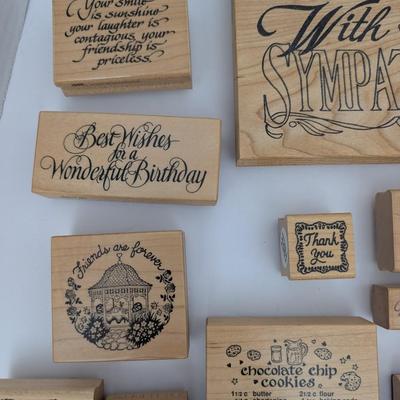 Your smile
is sunshine
your laughter is
contagious, your
friendship is
priceless.
With
SYMPAT
Best Wishes
for a
Wonderful Birthday
Friends are forever
Thank
You
chocolate chip
cookies
1 1/2 c butter 2 1/2 c flour